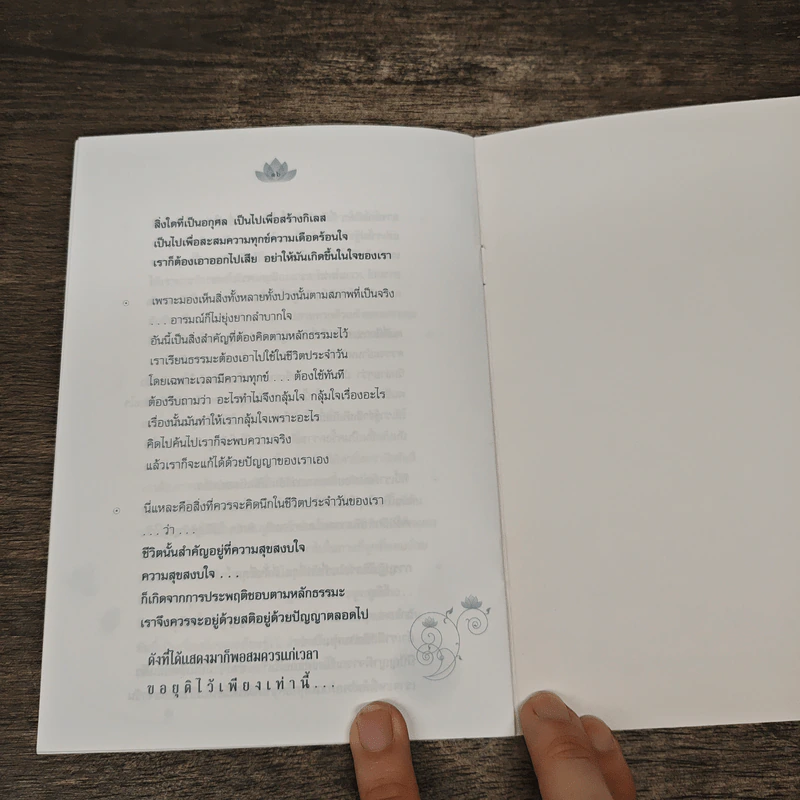 สิ่งใดที่เป็นอกุศล เป็นไปเพื่อสร้างกิเลส
เป็นไปเพื่อสะสมความทุกข์ความเดือดร้อนใจ
เราก็ต้องเอาออกไปเสีย อย่าให้มันเกิดขึ้นในใจของเรา
เพราะมองเห็นสิ่งทั้งหลายทั้งปวงนั้นตามสภาพที่เป็นจริง
. . . อารมณ์ก็ไม่ยุ่งยากลำบากใจ
อันนี้เป็นสิ่งสำคัญที่ต้องคิดตามหลักธรรมะไว้
เราเรียนธรรมะต้องเอาไปใช้ในชีวิตประจำวัน
โดยเฉพาะเวลามีความทุกข์ . . . ต้องใช้ทันที
ต้องรีบถามว่า อะไรทำไมจึงกลุ้มใจ กลุ้มใจเรื่องอะไร
เรื่องนั้นมันทำให้เรากลุ้มใจเพราะอะไร
คิดไปค้นไปเราก็จะพบความจริง
แล้วเราก็จะแก้ได้ด้วยปัญญาของเราเอง
นี่แหละคือสิ่งที่ควรจะคิดนึกในชีวิตประจำวันของเรา
. . . ว่า . . .
ชีวิตนั้นสำคัญอยู่ที่ความสุขสงบใจ
ความสุขสงบใจ . . .
ก็เกิดจากการประพฤติชอบตามหลักธรรมะ
เราจึงควรจะอยู่ด้วยสติอยู่ด้วยปัญญาตลอดไป
ดังที่ได้แสดงมาก็พอสมควรแก่เวลา
ข อ ยุ ติ ไ ว้ เ พี ย ง เ ท่ า นี้ . . .